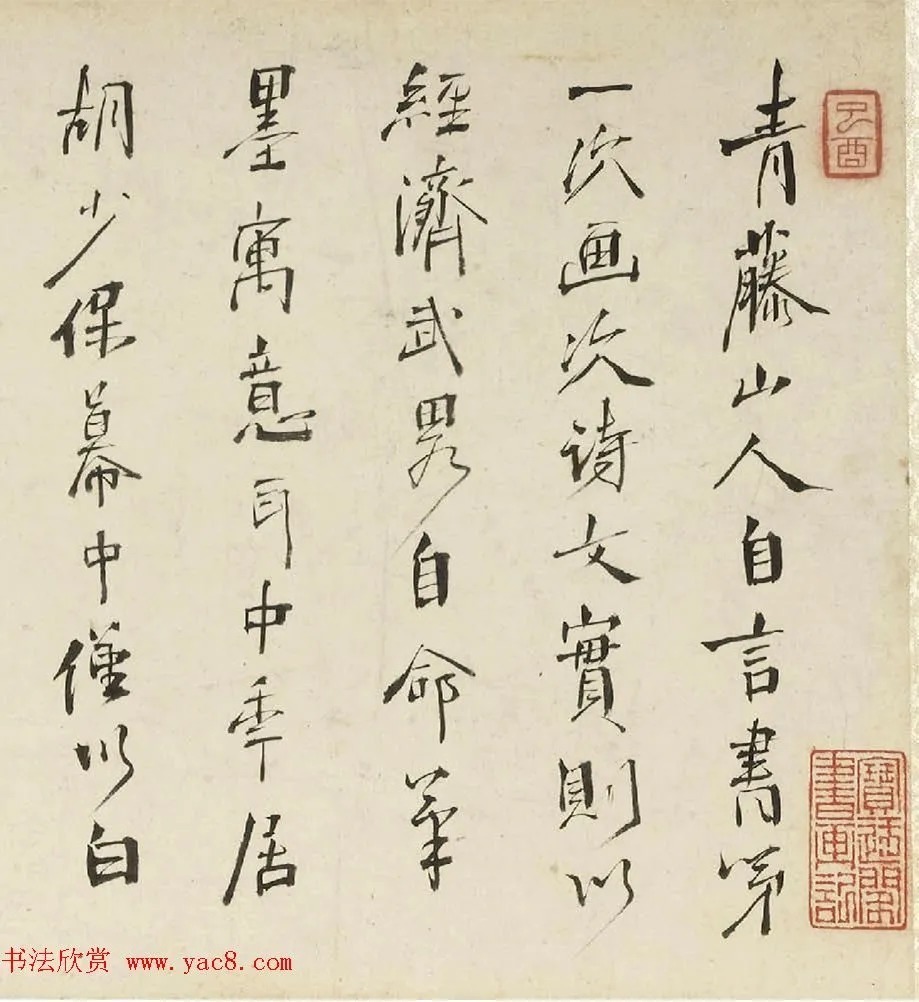 青藤山人自言書第
一次画次诗文實則以
經濟武畧自命筆
墨寓意耳中年居
胡少保幕中僅以白
乙酉
寶迂閣書畫記
书法欣赏 www.yac8.com